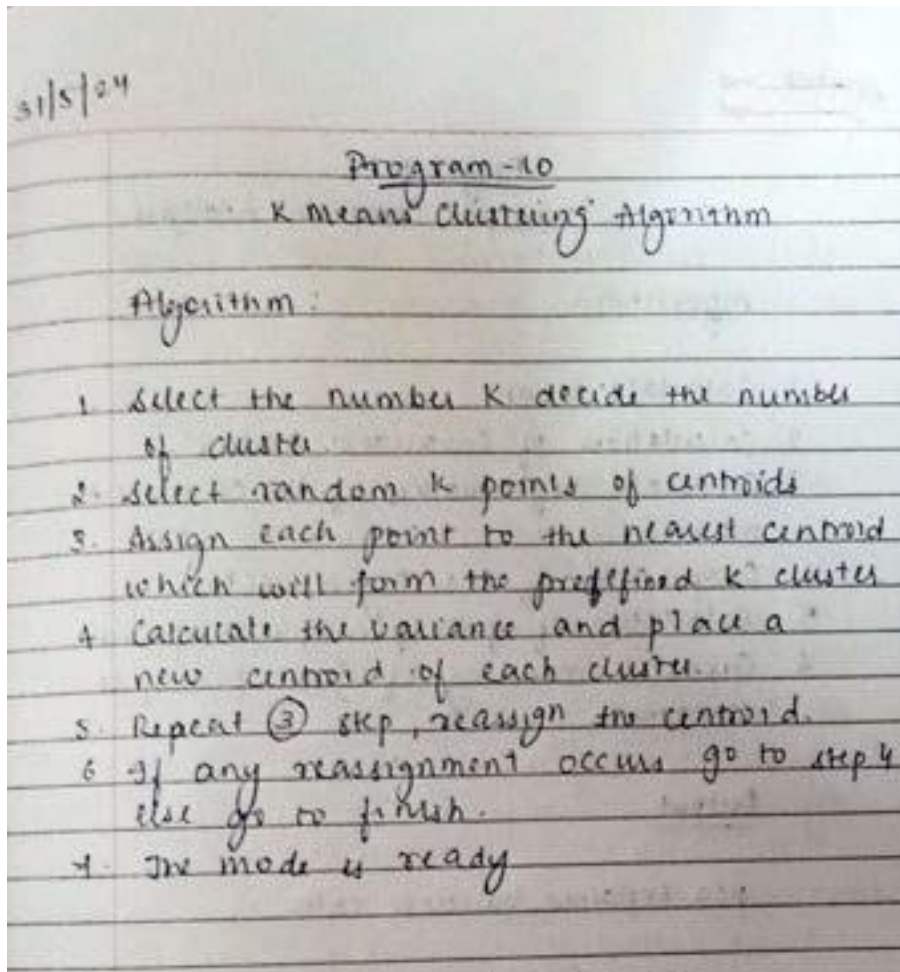 31/5/24
Program-10
K Means Clustering Algorithm
Algorithm:
1. Select the number K decide the number
of cluster
2. Select random K points of centroids
3. Assign each point to the nearest centroid
which will form the predefined K cluster
4. Calculate the variance and place a
new centroid of each cluster.
5. Repeat ③ step, reassign the centroid.
6. If any reassignment occurs go to step 4
else go to finish.
7. The mode is ready